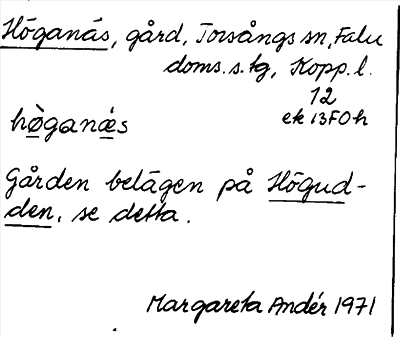 Höganäs, gård, Torsångs sn, Falu
doms. s. tg, Kopp. l.
12
ek 13F0h
hò̱ganä̱́s
Gården belägen på Högud-
den, se detta.
Margareta Andér 1971